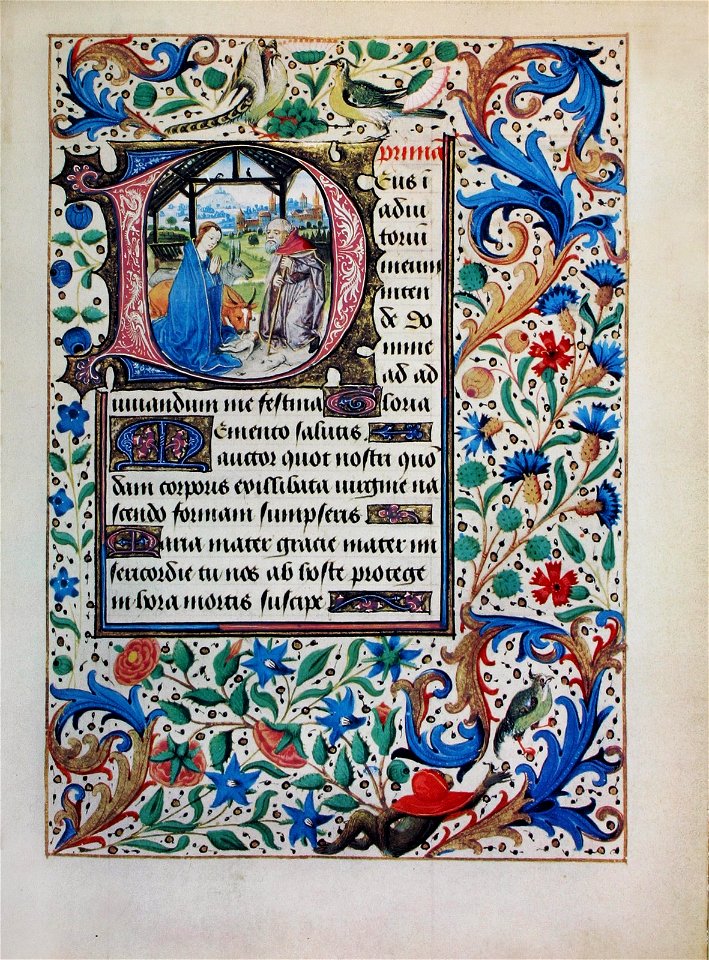 prima
Deus i
adiu
toriū
meum
inten
de do
mine
ad ad
iuuandum me festina Gloria
Memento salutis
auctor quot nostri quō
dam corporis exillibata uirgine na
scendo formam sumpseris
Maria mater gracie mater mi
sericordie tu nos ab hoste protege
in hora mortis suscipe